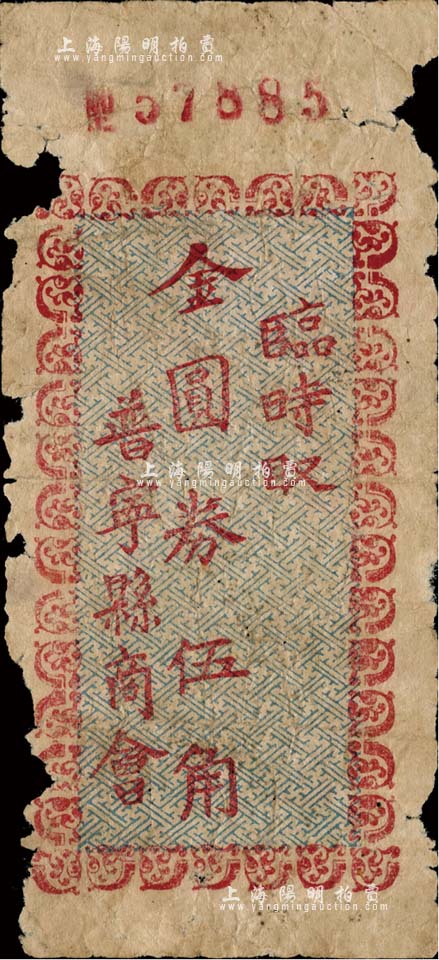 上海陽明拍賣
www.yangmingauction.com
№ 57885
臨時取
金圓券伍角
普宁縣商會
上海陽明拍賣
www.yangmingauction.com
上海陽明拍賣
www.yangmingauction.com